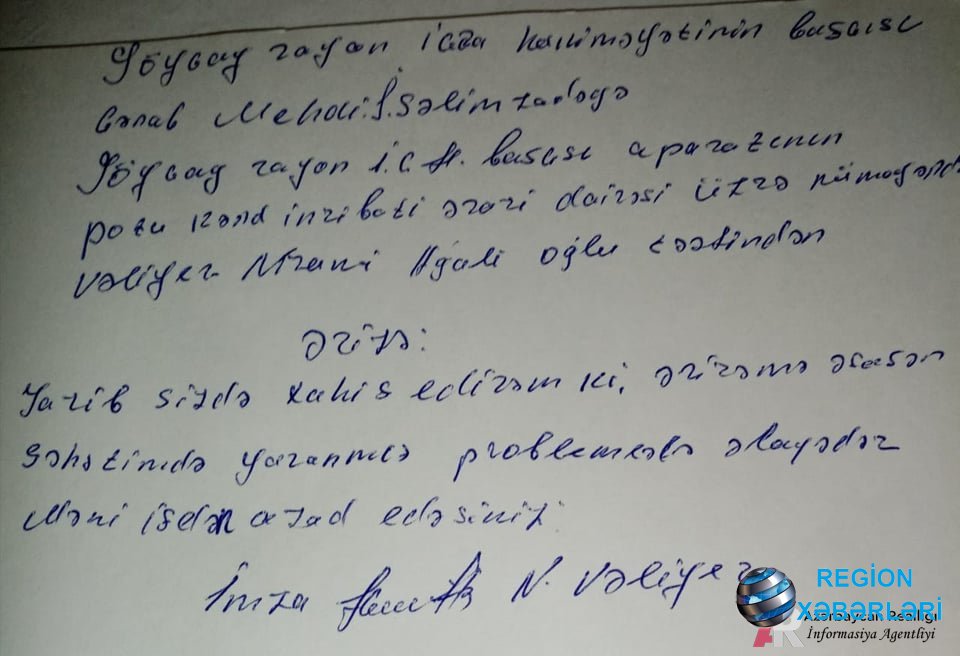 Göyçay rayon İcra hakiməyətinin başçısı
Cənab Mehdi.İ.Səlimzadəyə
Göyçay rayon İ.C.H. başçısı aparatının
potu kənd inzibati ərazi dairəsi üzrə nümayəndə
Vəliyev Ağali oğlu təəfindən
Ərizə:
Yazib sizdə xahiş edirəm ki, ərizəmə əsasən
Səhətimdə problemlərlə əlaqədər
Məni işdən azad edəsiniz.
İmza N. Vəliyev
REGİON
XƏBƏRLƏRİ
Azərbaycan Reallığı
İnformasiya Agentliyi